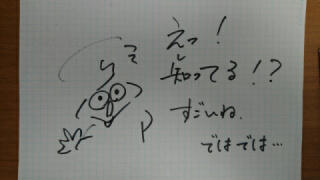 えっ!
知ってる!?
すごいね.
ではでは…